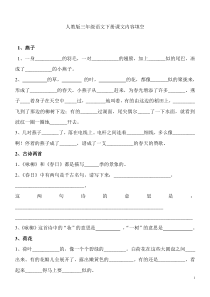 人教版三年级语文下册课文内容填空
1、燕子
1、一身________的羽毛，一对________的翅膀，加上________似的尾巴，凑成了________的小燕子。
2、________的草，________的叶，________的花，都像________似的聚拢来，形成了________的春天。小燕子从________赶来，为春光增添了许多________。燕子________着身子在天空中________过，________地叫着，有的由这边的稻田上，一转眼飞到了那边的________下边；有的________过湖面，尾尖偶尔________了一下水面，就看到波纹一圈一圈地________开去。
3、几对燕子________了，落在电线上。蓝天下，电杆之间连着几________细线，多么像________哇！停着的燕子成了________，谱成了一支________的春天的赞歌。
2、古诗两首
1、《咏柳》和《春日》都是描写________季的景象的。
2、《春日》诗中有两句是千古名句，请写下，并写出诗句的意思。________，________。
这两句诗的意思是：________
3、《咏柳》这首诗的“妆”的意思是________，“一树”的意思是________。
3、荷花
1、荷叶________的，像一个个碧绿的________。白荷花在这些大圆盘之间________出来。有的花瓣儿全展开了，露出嫩黄色的________。有的还是________，看起来________得马上要________似的。
1